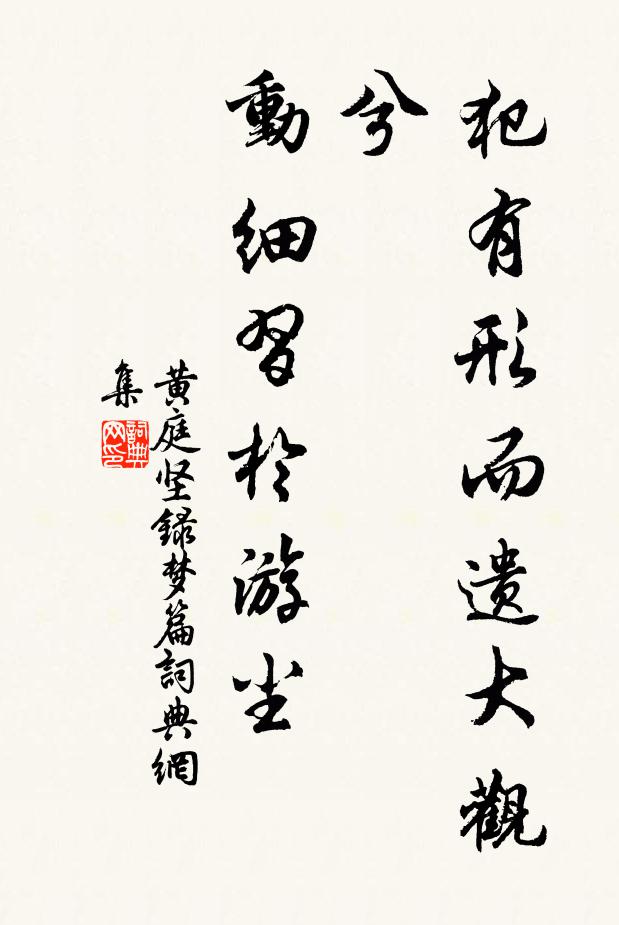 犯有形而遗大觀
兮
動细習於游尘
黄庭坚録梦篇詞典網
集
詞典
网印